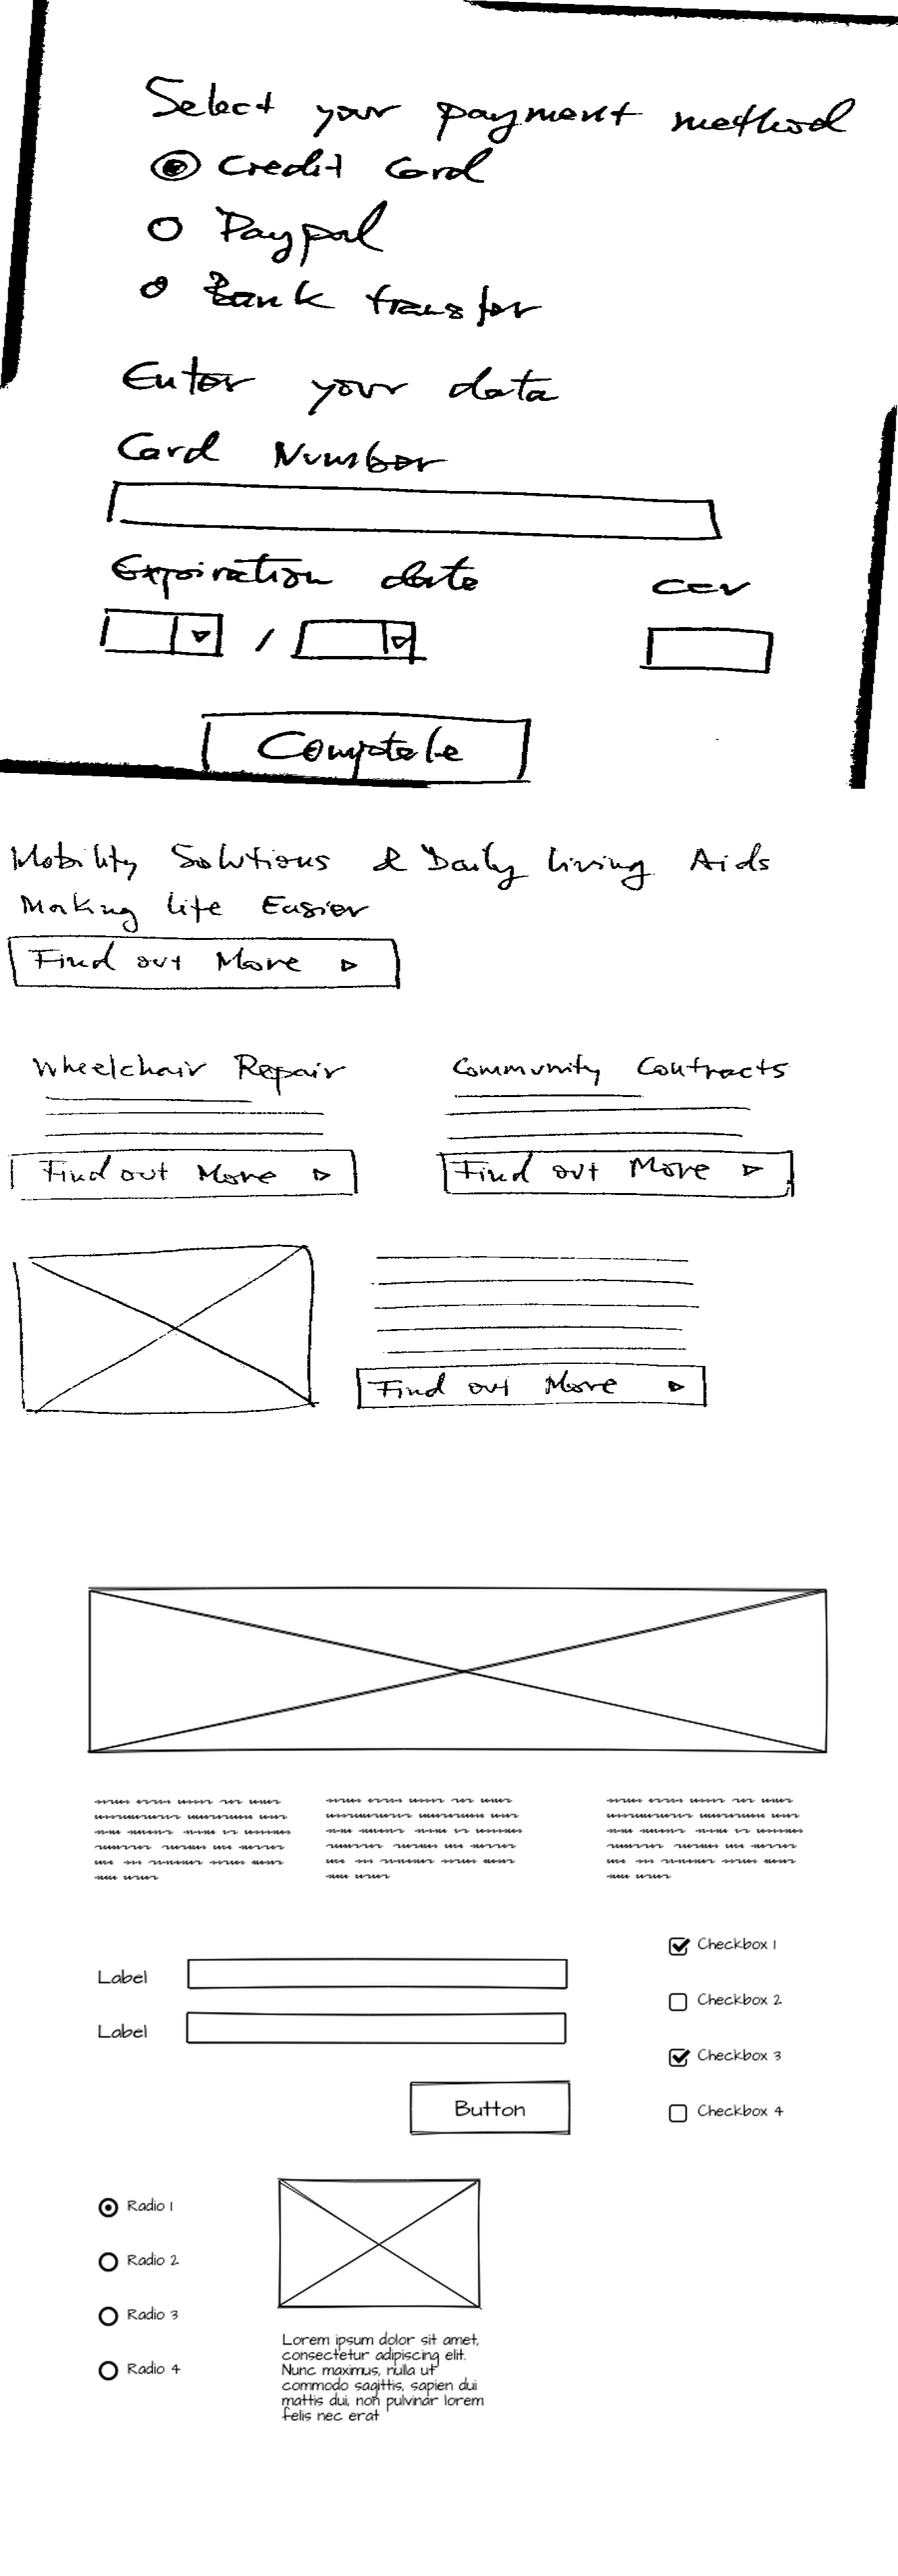 Select your payment method
Credit Card
Paypal
Bank transfer
Enter your data
Card Number
Expiration date ccv
/
Complete
Mobility Solutions & Daily living Aids
Making life Easier
Find out More
Wheelchair Repair Community Contracts
Find out More Find out More
Find out More
Checkbox 1
Label
Checkbox 2
Label
Checkbox 3
Button
Checkbox 4
Radio 1
Radio 2
Radio 3
Radio 4
Lorem ipsum dolor sit amet,
consectetur adipiscing elit.
Nunc maximus, nulla ut
commodo sagittis, sapien dui
mattis dui, non pulvinar lorem
felis nec erat